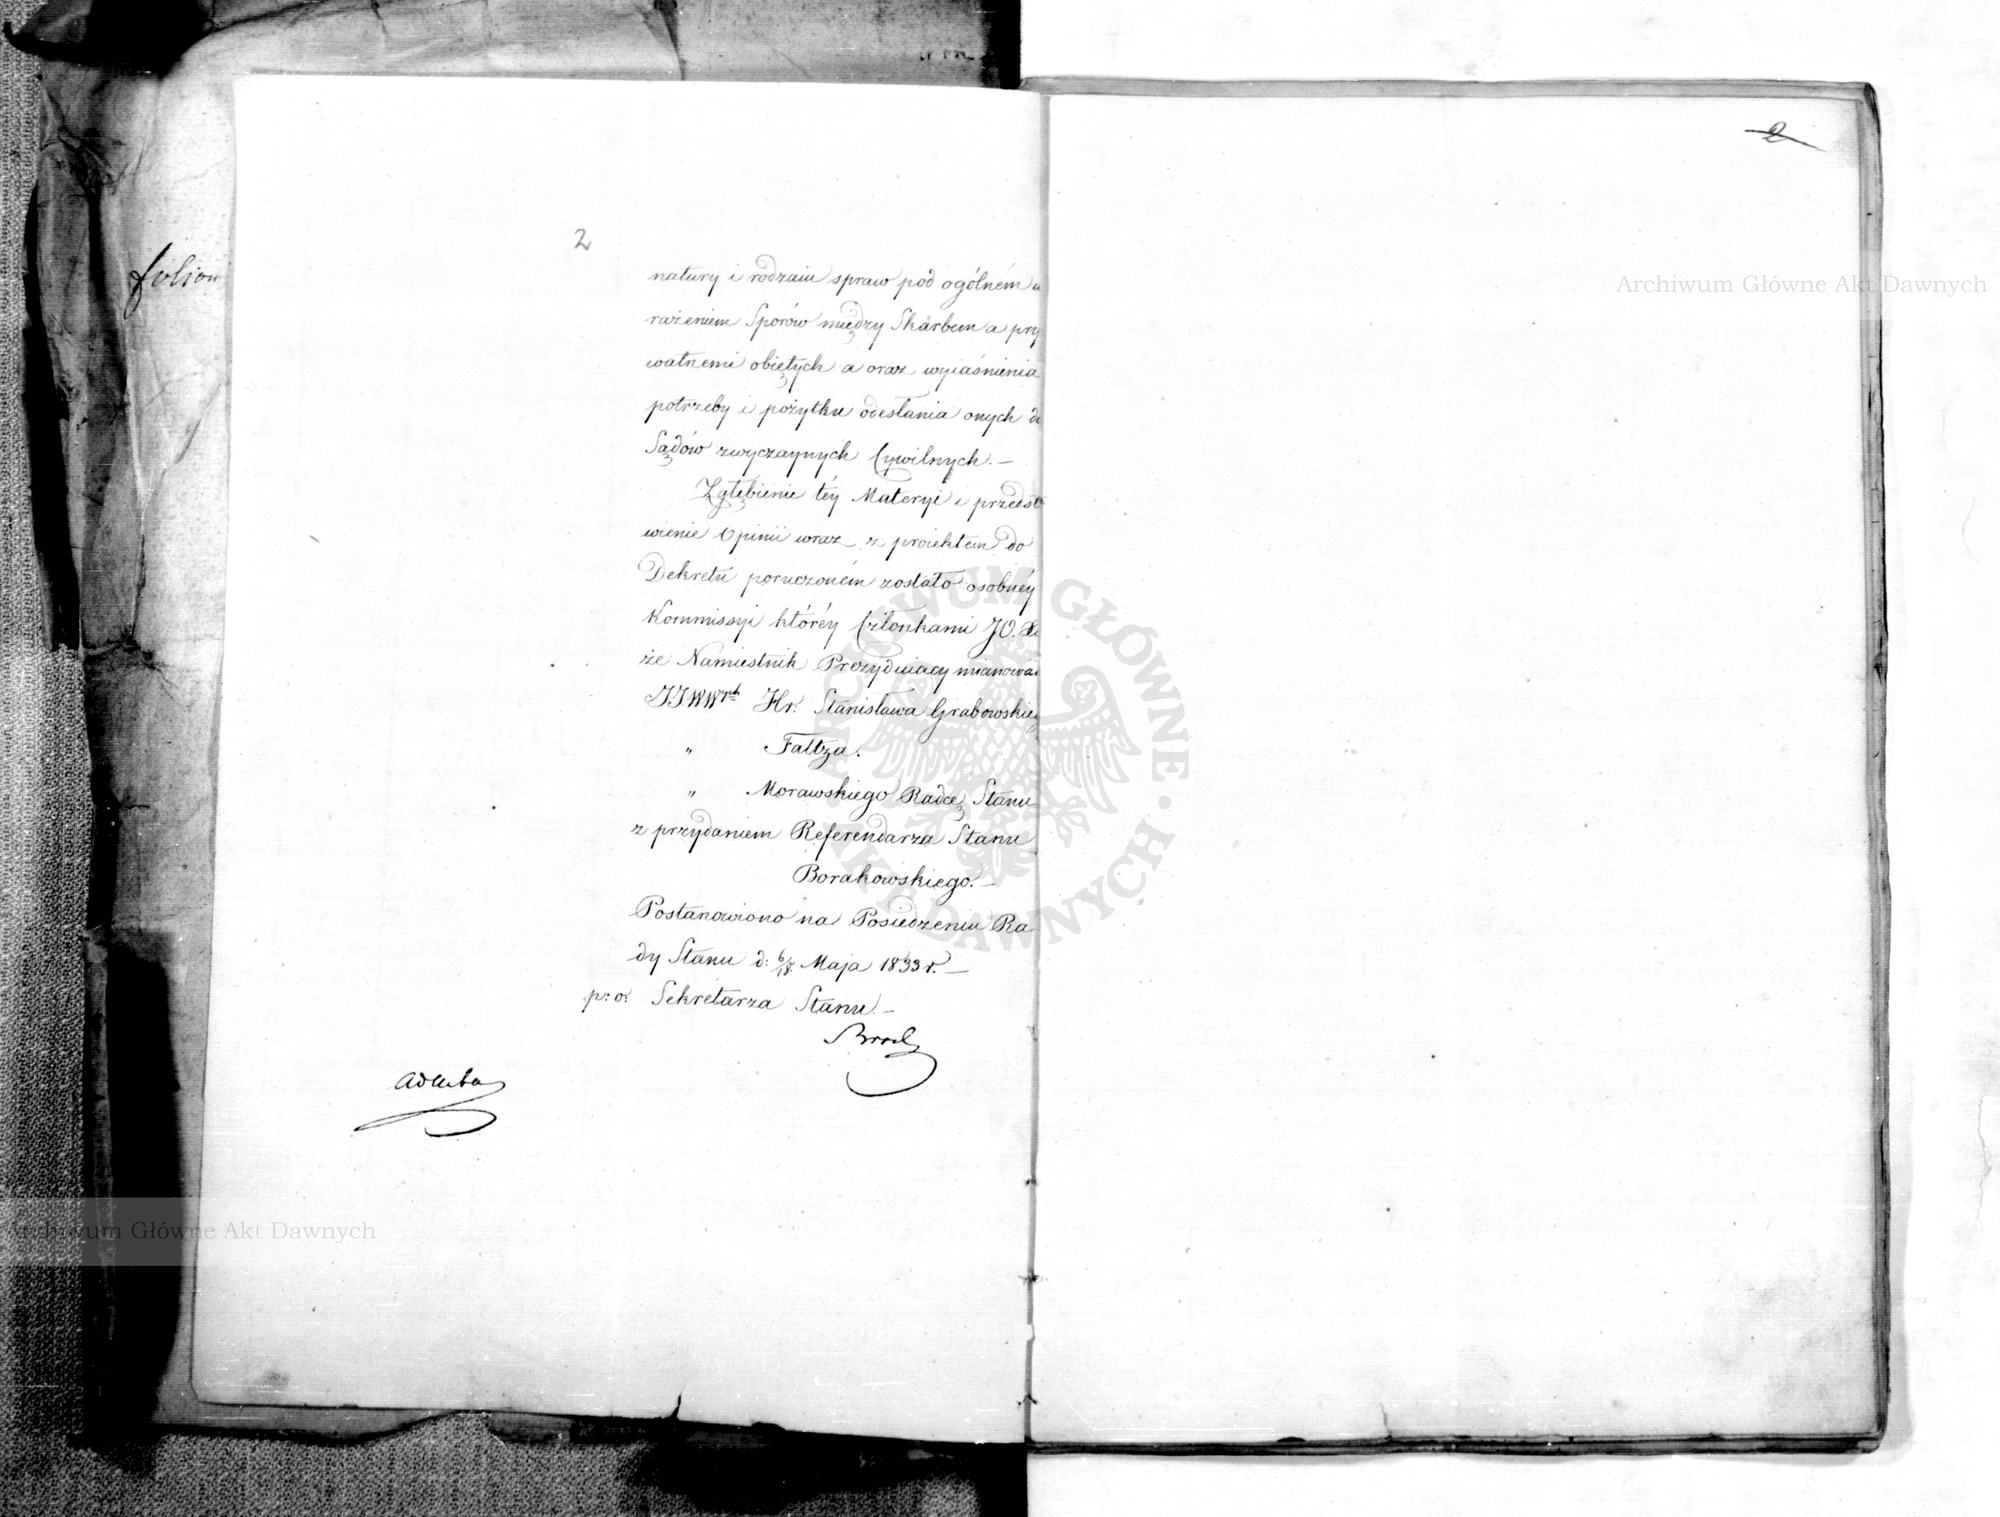 2
2
folion
natury i rodzaiu spraw pod ogólném w
rażeniem Sporów między Skarbem a pry
watnemi obiętych a oraz wyiaśnienia
potrzeby i pożytku odesłania onych do
Sądów zwyczaynych Cywilnych. —
Zgłębienie téy Materyi i przedsta
wienie Opinii wraz z proiektem do
Dekretu poruczoném zostało osobnéy
Kommissyi któréy Członkami JO. Xią
że Namiestnik Prezyduiący mianował
JJWW^ch Hr. Stanisława Grabowskieg
" Faltza.
" Morawskiego Radcę Stanu
z przydaniem Referendarza Stanu
Borakowskiego. —
Postanowiono na Posiedzeniu Ra
dy Stanu d: 6/18. Maja 1833 r. —
p: o: Sekretarza Stanu. —
Archiwum Główne Akt Dawnych
Archiwum Główne Akt Dawnych
ARCHIWUM GŁÓWNE · AKT DAWNYCH ·